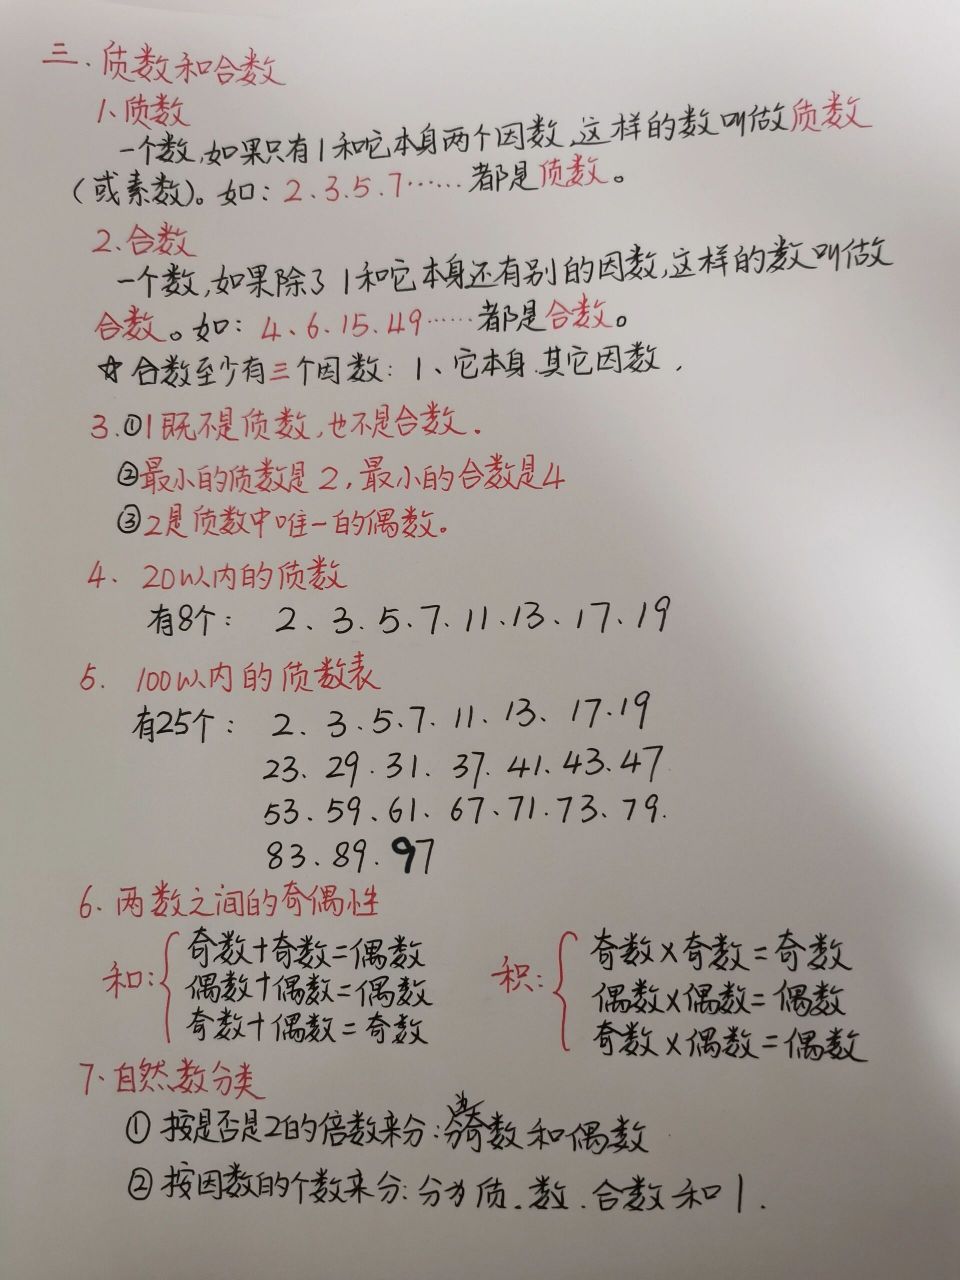 三、质数和合数
1、质数
一个数,如果只有1和它本身两个因数,这样的数叫做质数
(或素数)。如: 2.3.5.7……都是质数。
2.合数
一个数,如果除了1和它本身还有别的因数,这样的数叫做
合数。如: 4、6.15.49……都是合数。
☆合数至少有三个因数: 1、它本身.其它因数.
3.①1既不是质数,也不是合数.
②最小的质数是2,最小的合数是4
③2是质数中唯一的偶数。
4. 20以内的质数
有8个: 2、3.5.7.11.13.17.19
5. 100以内的质数表
有25个: 2.3.5.7.11.13.17.19
23.29.31.37.41.43.47
53.59.61.67.71.73.79.
83.89.97
6.两数之间的奇偶性
和: 奇数+奇数=偶数
偶数+偶数=偶数
奇数+偶数=奇数
积: 奇数×奇数=奇数
偶数×偶数=偶数
奇数×偶数=偶数
7.自然数分类
①按是否是2的倍数来分:分奇数和偶数
②按因数的个数来分:分为质.数.合数和1.